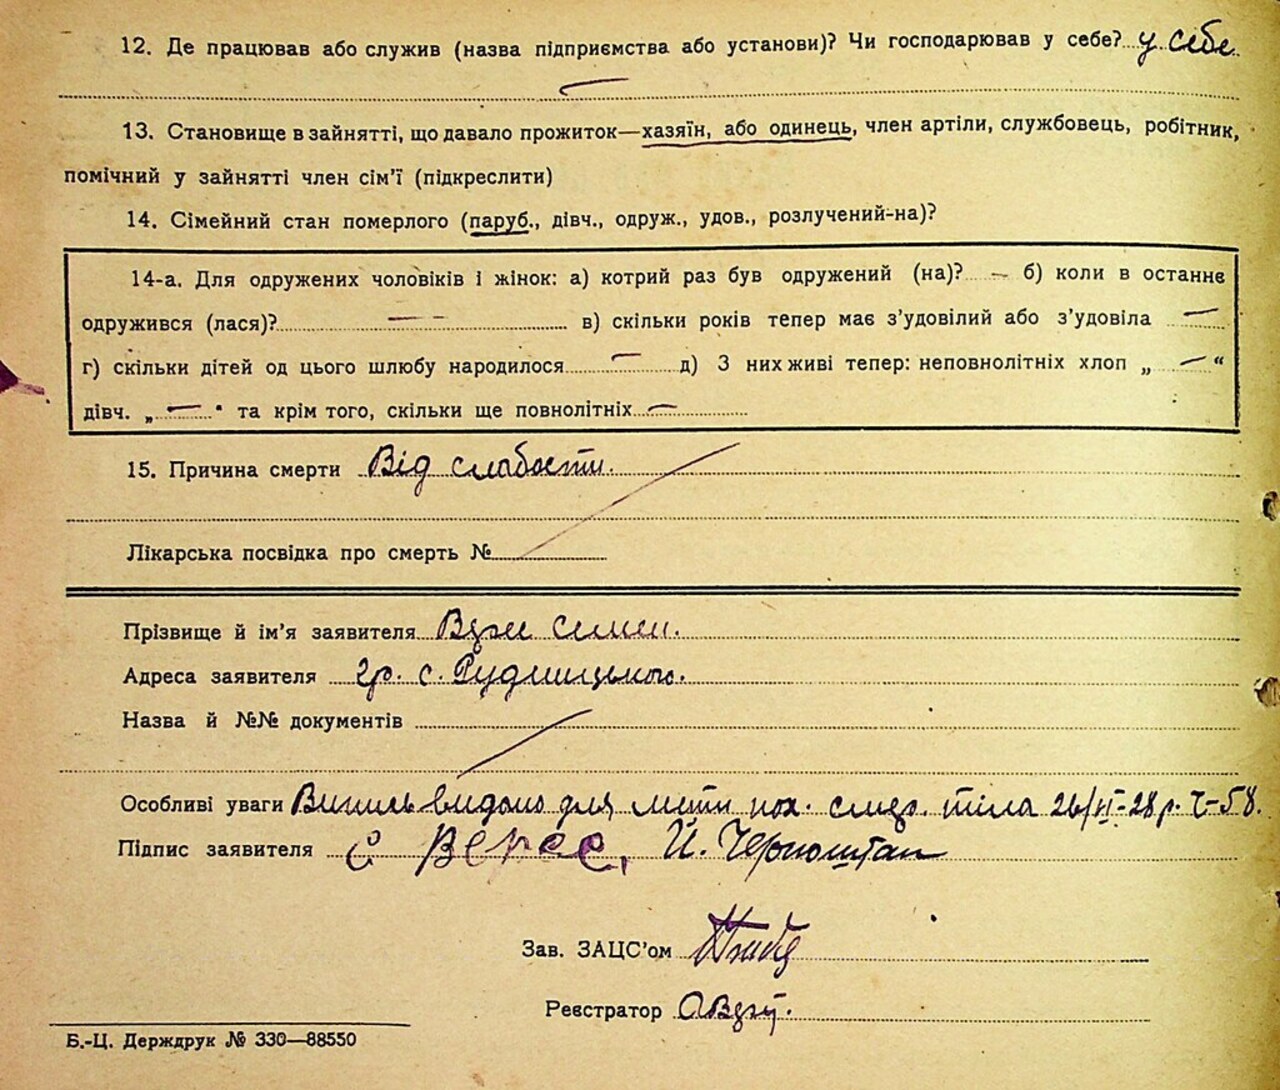 12. Де працював або служив (назва підприємства або установи)? Чи господарював у себе? у себе
13. Становище в зайнятті, що давало прожиток—хазяїн, або одинець, член артіли, службовець, робітник,
помічний у зайнятті член сім’ї (підкреслити)
14. Сімейний стан померлого (паруб., дівч., одруж., удов., розлучений-на)?
14-а. Для одружених чоловіків і жінок: а) котрий раз був одружений (на)? — б) коли в останнє
одружився (лася)? — в) скільки років тепер має з’удовілий або з’удовіла —
г) скільки дітей од цього шлюбу народилося — д) З них живі тепер: неповнолітніх хлоп „ — “
дівч. „ — " та крім того, скільки ще повнолітніх —
15. Причина смерти Від слабости.
Лікарська посвідка про смерть №
Прізвище й ім’я заявителя Семен.
Адреса заявителя гр. с. Рудницького.
Назва й №№ документів
Особливі уваги видано для тіла 26/VI-28 р. Ч-58.
Підпис заявителя С Верес, Й.
Зав. ЗАЦС’ом
Реєстратор
Б.-Ц. Держдрук № 330—88550